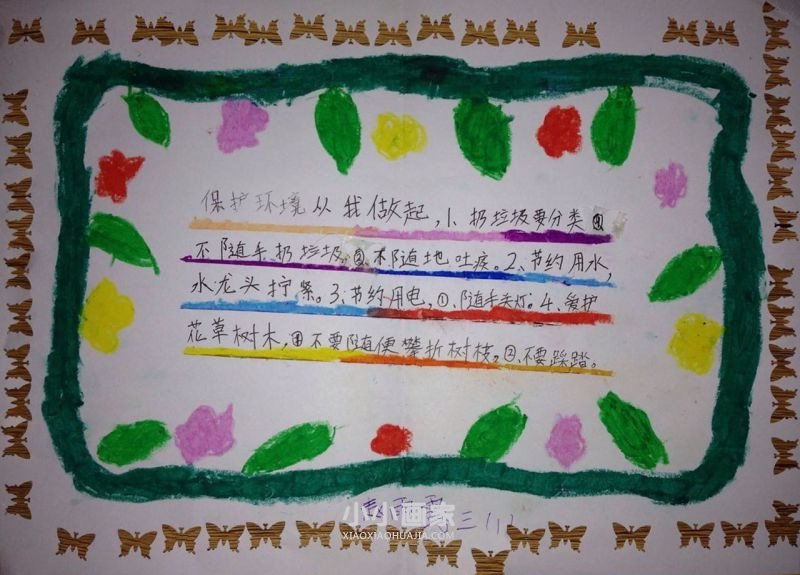 保护环境从我做起,1、扔垃圾要分类①
不随手扔垃圾。②、不随地吐痰。2、节约用水,
水龙头拧紧。3、节约用电,①、随手关灯。4、爱护
花草树木,①不要随便攀折树枝。②、不要踩踏。
三(1)
小小画家
XIAOXIAOHUAJIA.COM